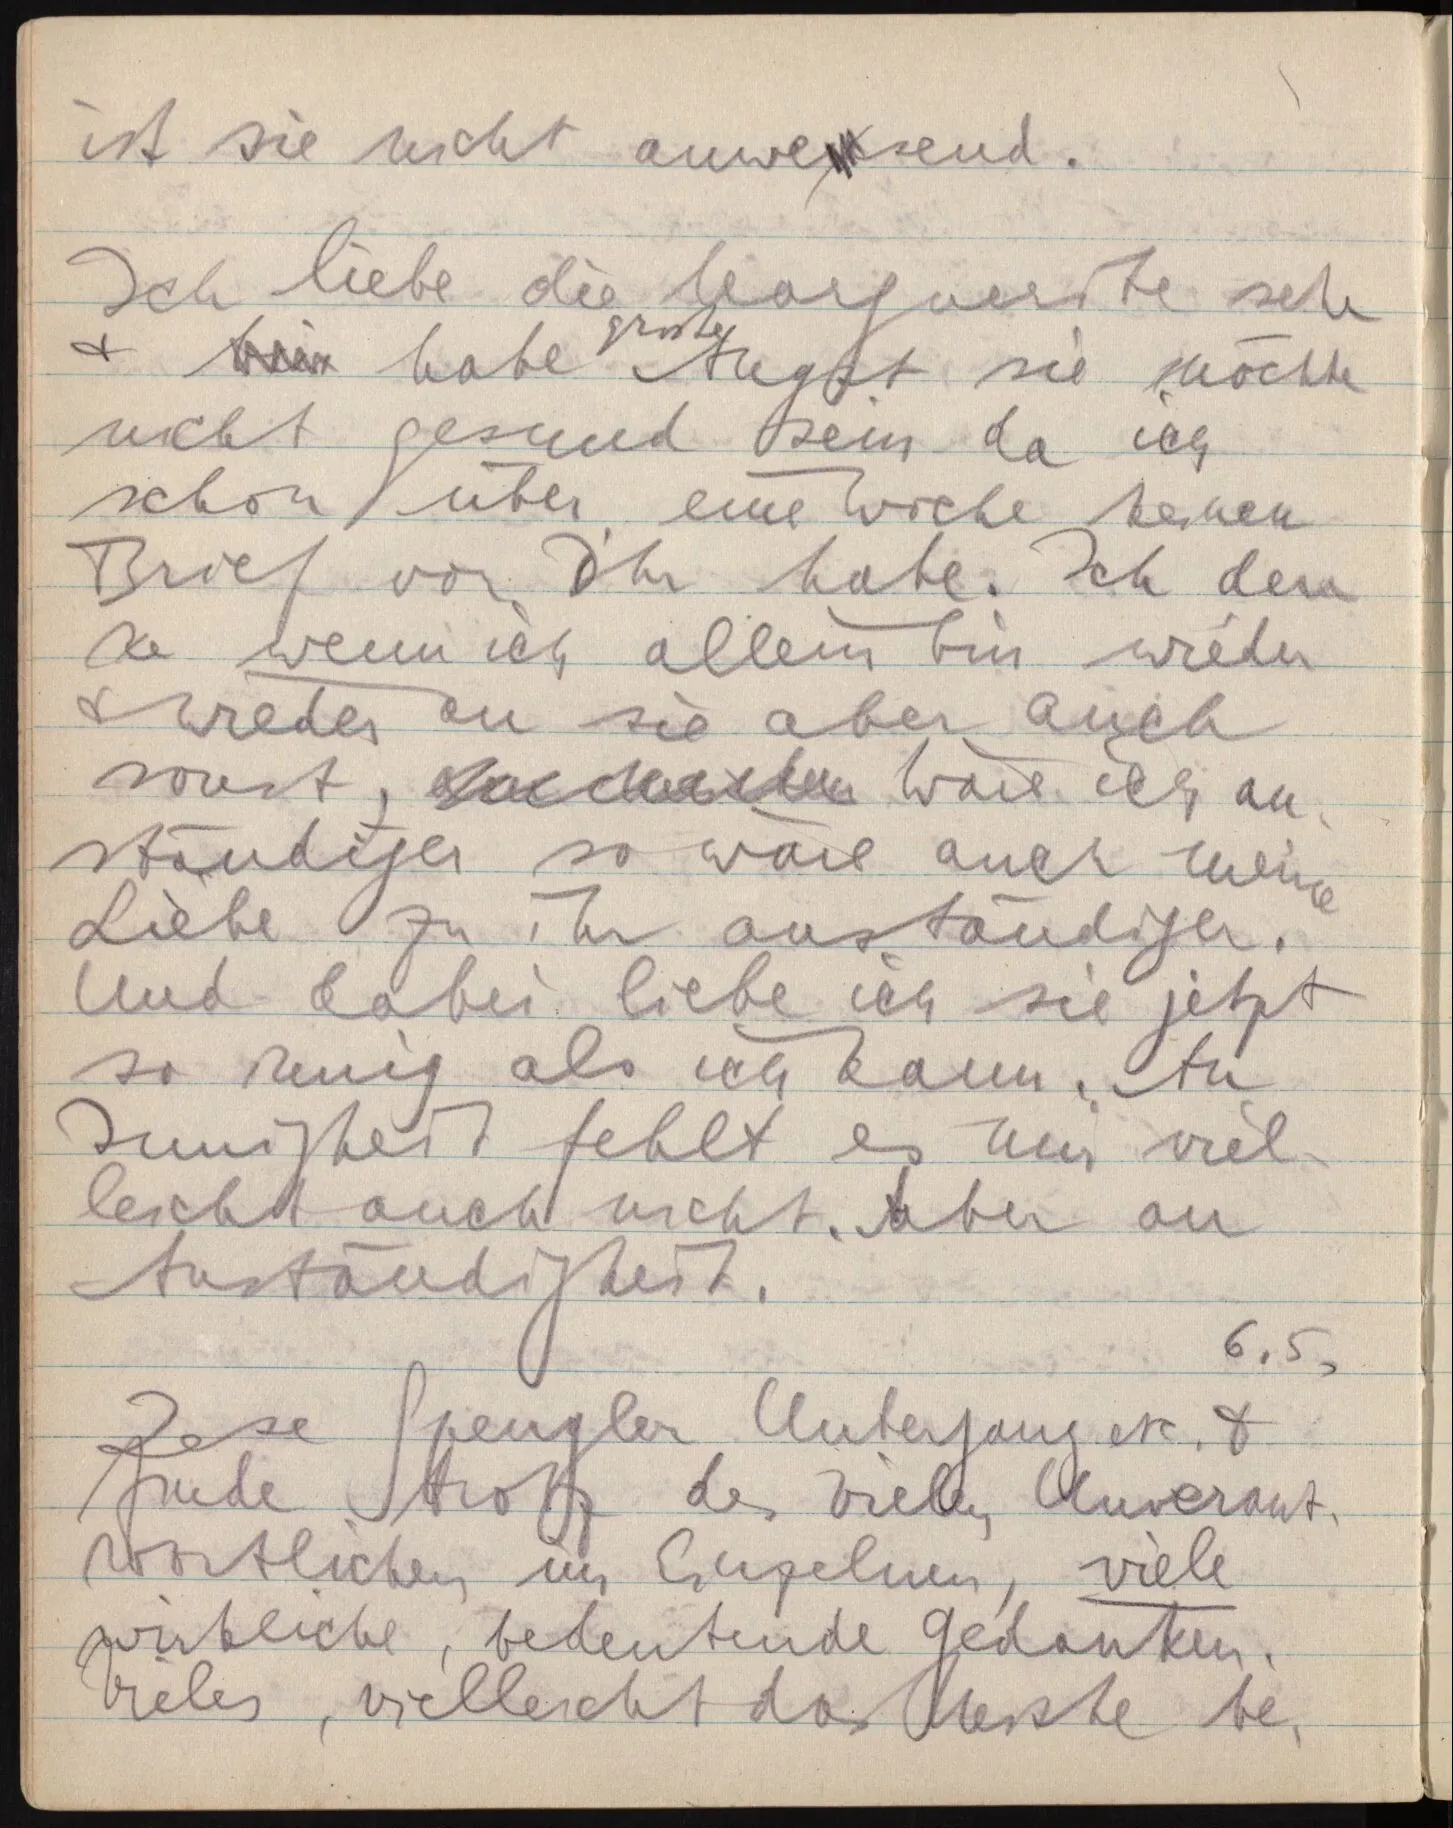 ist sie nicht anwesend.
Ich liebe die Marguerite sehr
& habe große Angst sie möchte
nicht gesund sein da ich
schon über eine Woche keinen
Brief von Ihr habe. Ich den
ke wenn ich allein bin wieder
& wieder an sie aber auch
sonst, wäre ich an-
ständiger so wäre auch meine
Liebe zu ihr anständiger.
Und dabei liebe ich sie jetzt
so innig als ich kann. An
Innigkeit fehlt es mir viel-
leicht auch nicht. Aber an
Anständigkeit.
6.5.
Lese Spengler Untergang etc. &
finde trotz des vielen Unverant-
wortlichen im Einzelnen, viele
wirkliche, bedeutende Gedanken.
Vieles, vielleicht das Meiste be-